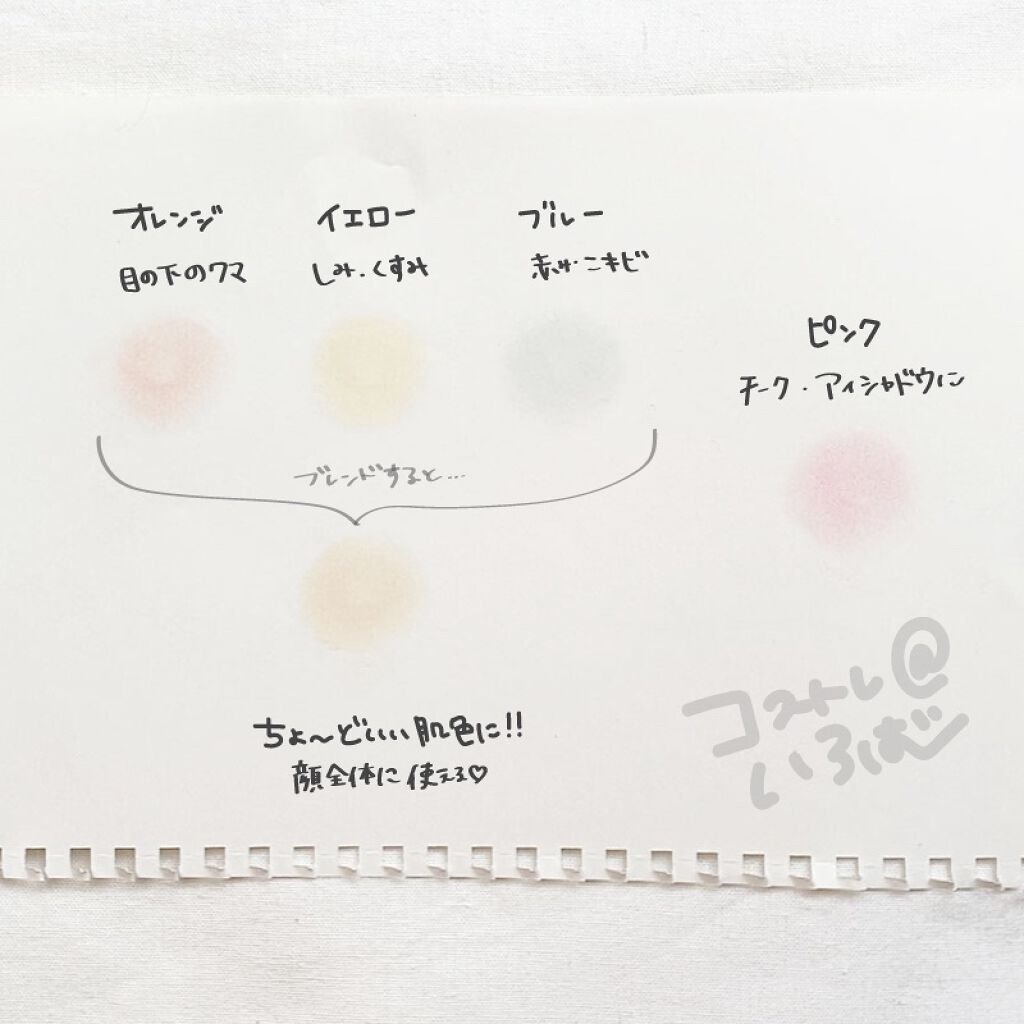 オレンジ
目の下のクマ
イエロー
しみ・くすみ
ブルー
赤み・ニキビ
ピンク
チーク・アイシャドウに
ブレンドすると…
ちょ〜どいい肌色に!!
顔全体に使える♡
コストレ@
いろは